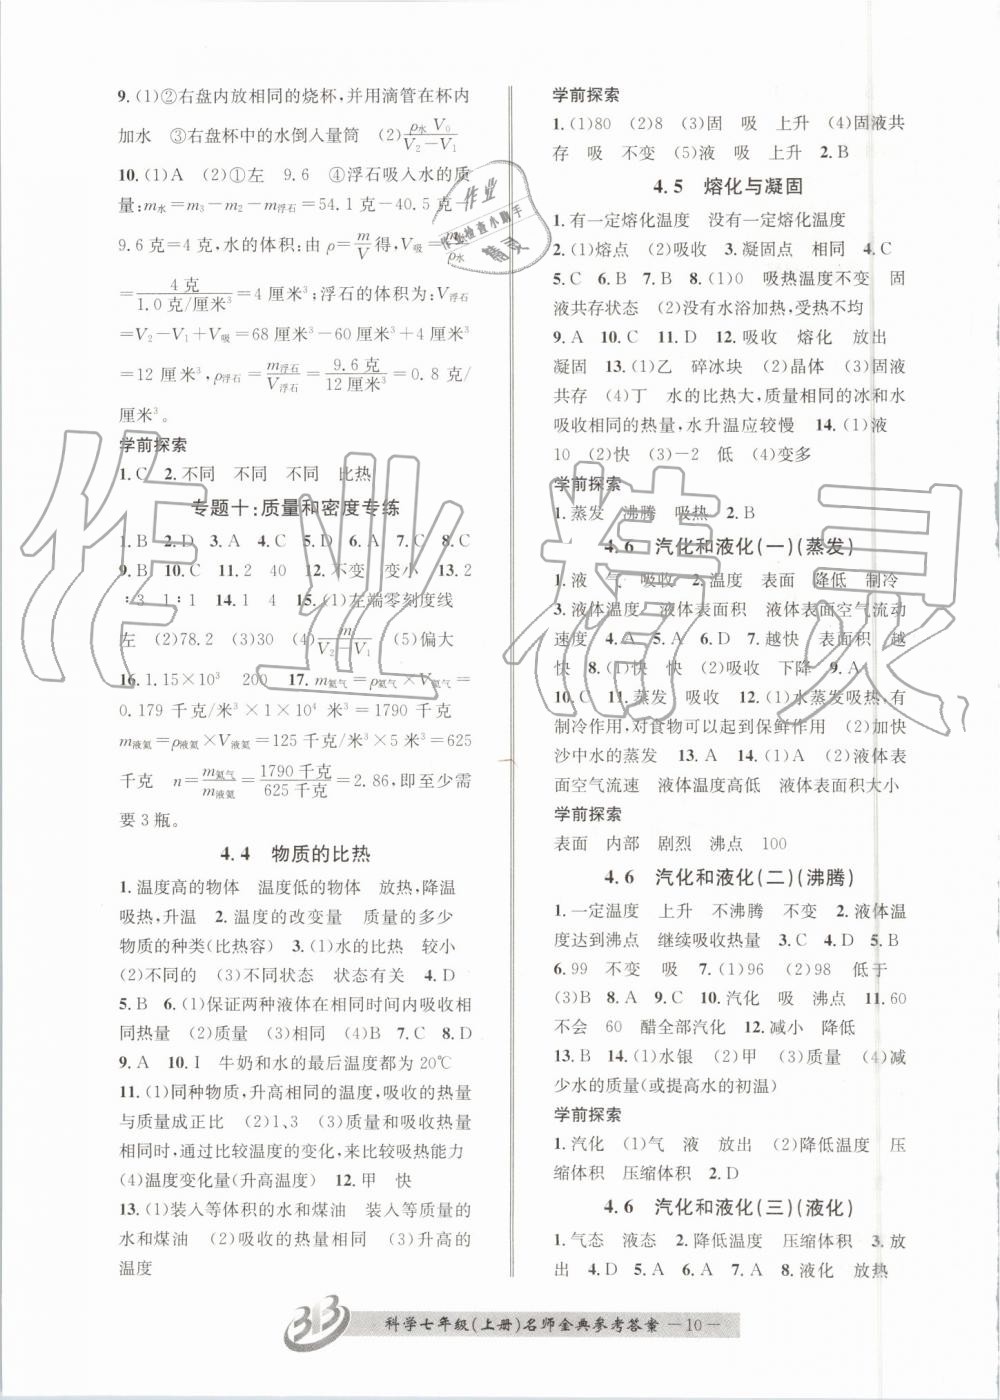 9. (1)②右盘内放相同的烧杯,并用滴管在杯内
加水　③右盘杯中的水倒入量筒　(2)ρ水 V₀/(V₂－V₁)
10. (1)A　(2)①左　9.6　④浮石吸入水的质
量:m水＝m₃－m₂－m浮石＝54.1克－40.5克－
9.6克＝4克,水的体积:由ρ＝m/V得,V吸＝m/ρ水
＝4克/1.0克/厘米³＝4厘米³;浮石的体积为:V浮石
＝V₂－V₁＋V吸＝68厘米³－60厘米³＋4厘米³
＝12厘米³,ρ浮石＝m浮石/V浮石＝9.6克/12厘米³＝0.8克/
厘米³。
学前探索
1. C　2. 不同　不同　不同　比热
专题十:质量和密度专练
1. B　2. D　3. A　4. C　5. D　6. A　7. C　8. C
9. B　10. C　11. 2　40　12. 不变　变小　13. 2
∶3　1∶1　14. 1　4　15. (1)左端零刻度线
左　(2)78.2　(3)30　(4)m/(V₂－V₁)　(5)偏大
16. 1.15×10³　200　17. m氦气＝ρ氦气×V氦气＝
0.179千克/米³×1×10⁴米³＝1790千克
m液氦＝ρ液氦×V液氦＝125千克/米³×5米³＝625
千克　n＝m氦气/m液氦＝1790千克/625千克＝2.86,即至少需
要3瓶。
4.4　物质的比热
1. 温度高的物体　温度低的物体　放热,降温
吸热,升温　2. 温度的改变量　质量的多少
物质的种类(比热容)　3. (1)水的比热　较小
(2)不同的　(3)不同状态　状态有关　4. D
5. B　6. (1)保证两种液体在相同时间内吸收相
同热量　(2)质量　(3)相同　(4)B　7. C　8. D
9. A　10. I　牛奶和水的最后温度都为20℃
11. (1)同种物质,升高相同的温度,吸收的热量
与质量成正比　(2)1、3　(3)质量和吸收热量
相同时,通过比较温度的变化,来比较吸热能力
(4)温度变化量(升高温度)　12. 甲　快
13. (1)装入等体积的水和煤油　装入等质量的
水和煤油　(2)吸收的热量相同　(3)升高的
温度
学前探索
1. (1)80　(2)8　(3)固　吸　上升　(4)固液共
存　吸　不变　(5)液　吸　上升　2. B
4.5　熔化与凝固
1. 有一定熔化温度　没有一定熔化温度
2. (1)熔点　(2)吸收　3. 凝固点　相同　4. C
5. C　6. B　7. B　8. (1)0　吸热温度不变　固
液共存状态　(2)没有水浴加热,受热不均
9. A　10. C　11. D　12. 吸收　熔化　放出
凝固　13. (1)乙　碎冰块　(2)晶体　(3)固液
共存　(4)丁　水的比热大,质量相同的冰和水
吸收相同的热量,水升温应较慢　14. (1)液
10　(2)快　(3)－2　低　(4)变多
学前探索
1. 蒸发　沸腾　吸热　2. B
4.6　汽化和液化(一)(蒸发)
1. 液　气　吸收　2. 温度　表面　降低　制冷
3. 液体温度　液体表面积　液体表面空气流动
速度　4. A　5. A　6. D　7. 越快　表面积　越
快　8. (1)快　快　(2)吸收　下降　9. A
10. C　11. 蒸发　吸收　12. (1)水蒸发吸热,有
制冷作用,对食物可以起到保鲜作用　(2)加快
沙中水的蒸发　13. A　14. A　15. 液体表
面空气流速　液体温度高低　液体表面积大小
学前探索
表面　内部　剧烈　沸点　100
4.6　汽化和液化(二)(沸腾)
1. 一定温度　上升　不沸腾　不变　2. 液体温
度达到沸点　继续吸收热量　3. C　4. D　5. B
6. 99　不变　吸　7. (1)96　(2)98　低于
(3)B　8. A　9. C　10. 汽化　吸　沸点　11. 60
不会　60　醋全部汽化　12. 减小　降低
13. B　14. (1)水银　(2)甲　(3)质量　(4)减
少水的质量(或提高水的初温)
学前探索
1. 汽化　(1)气　液　放出　(2)降低温度　压
缩体积　压缩体积　2. D
4.6　汽化和液化(三)(液化)
1. 气态　液态　2. 降低温度　压缩体积　3. 放
出　4. D　5. A　6. A　7. A　8. 液化　放热
科学七年级(上册)名师金典参考答案　－10－
作业
作业检查小助手
精灵
作业精灵